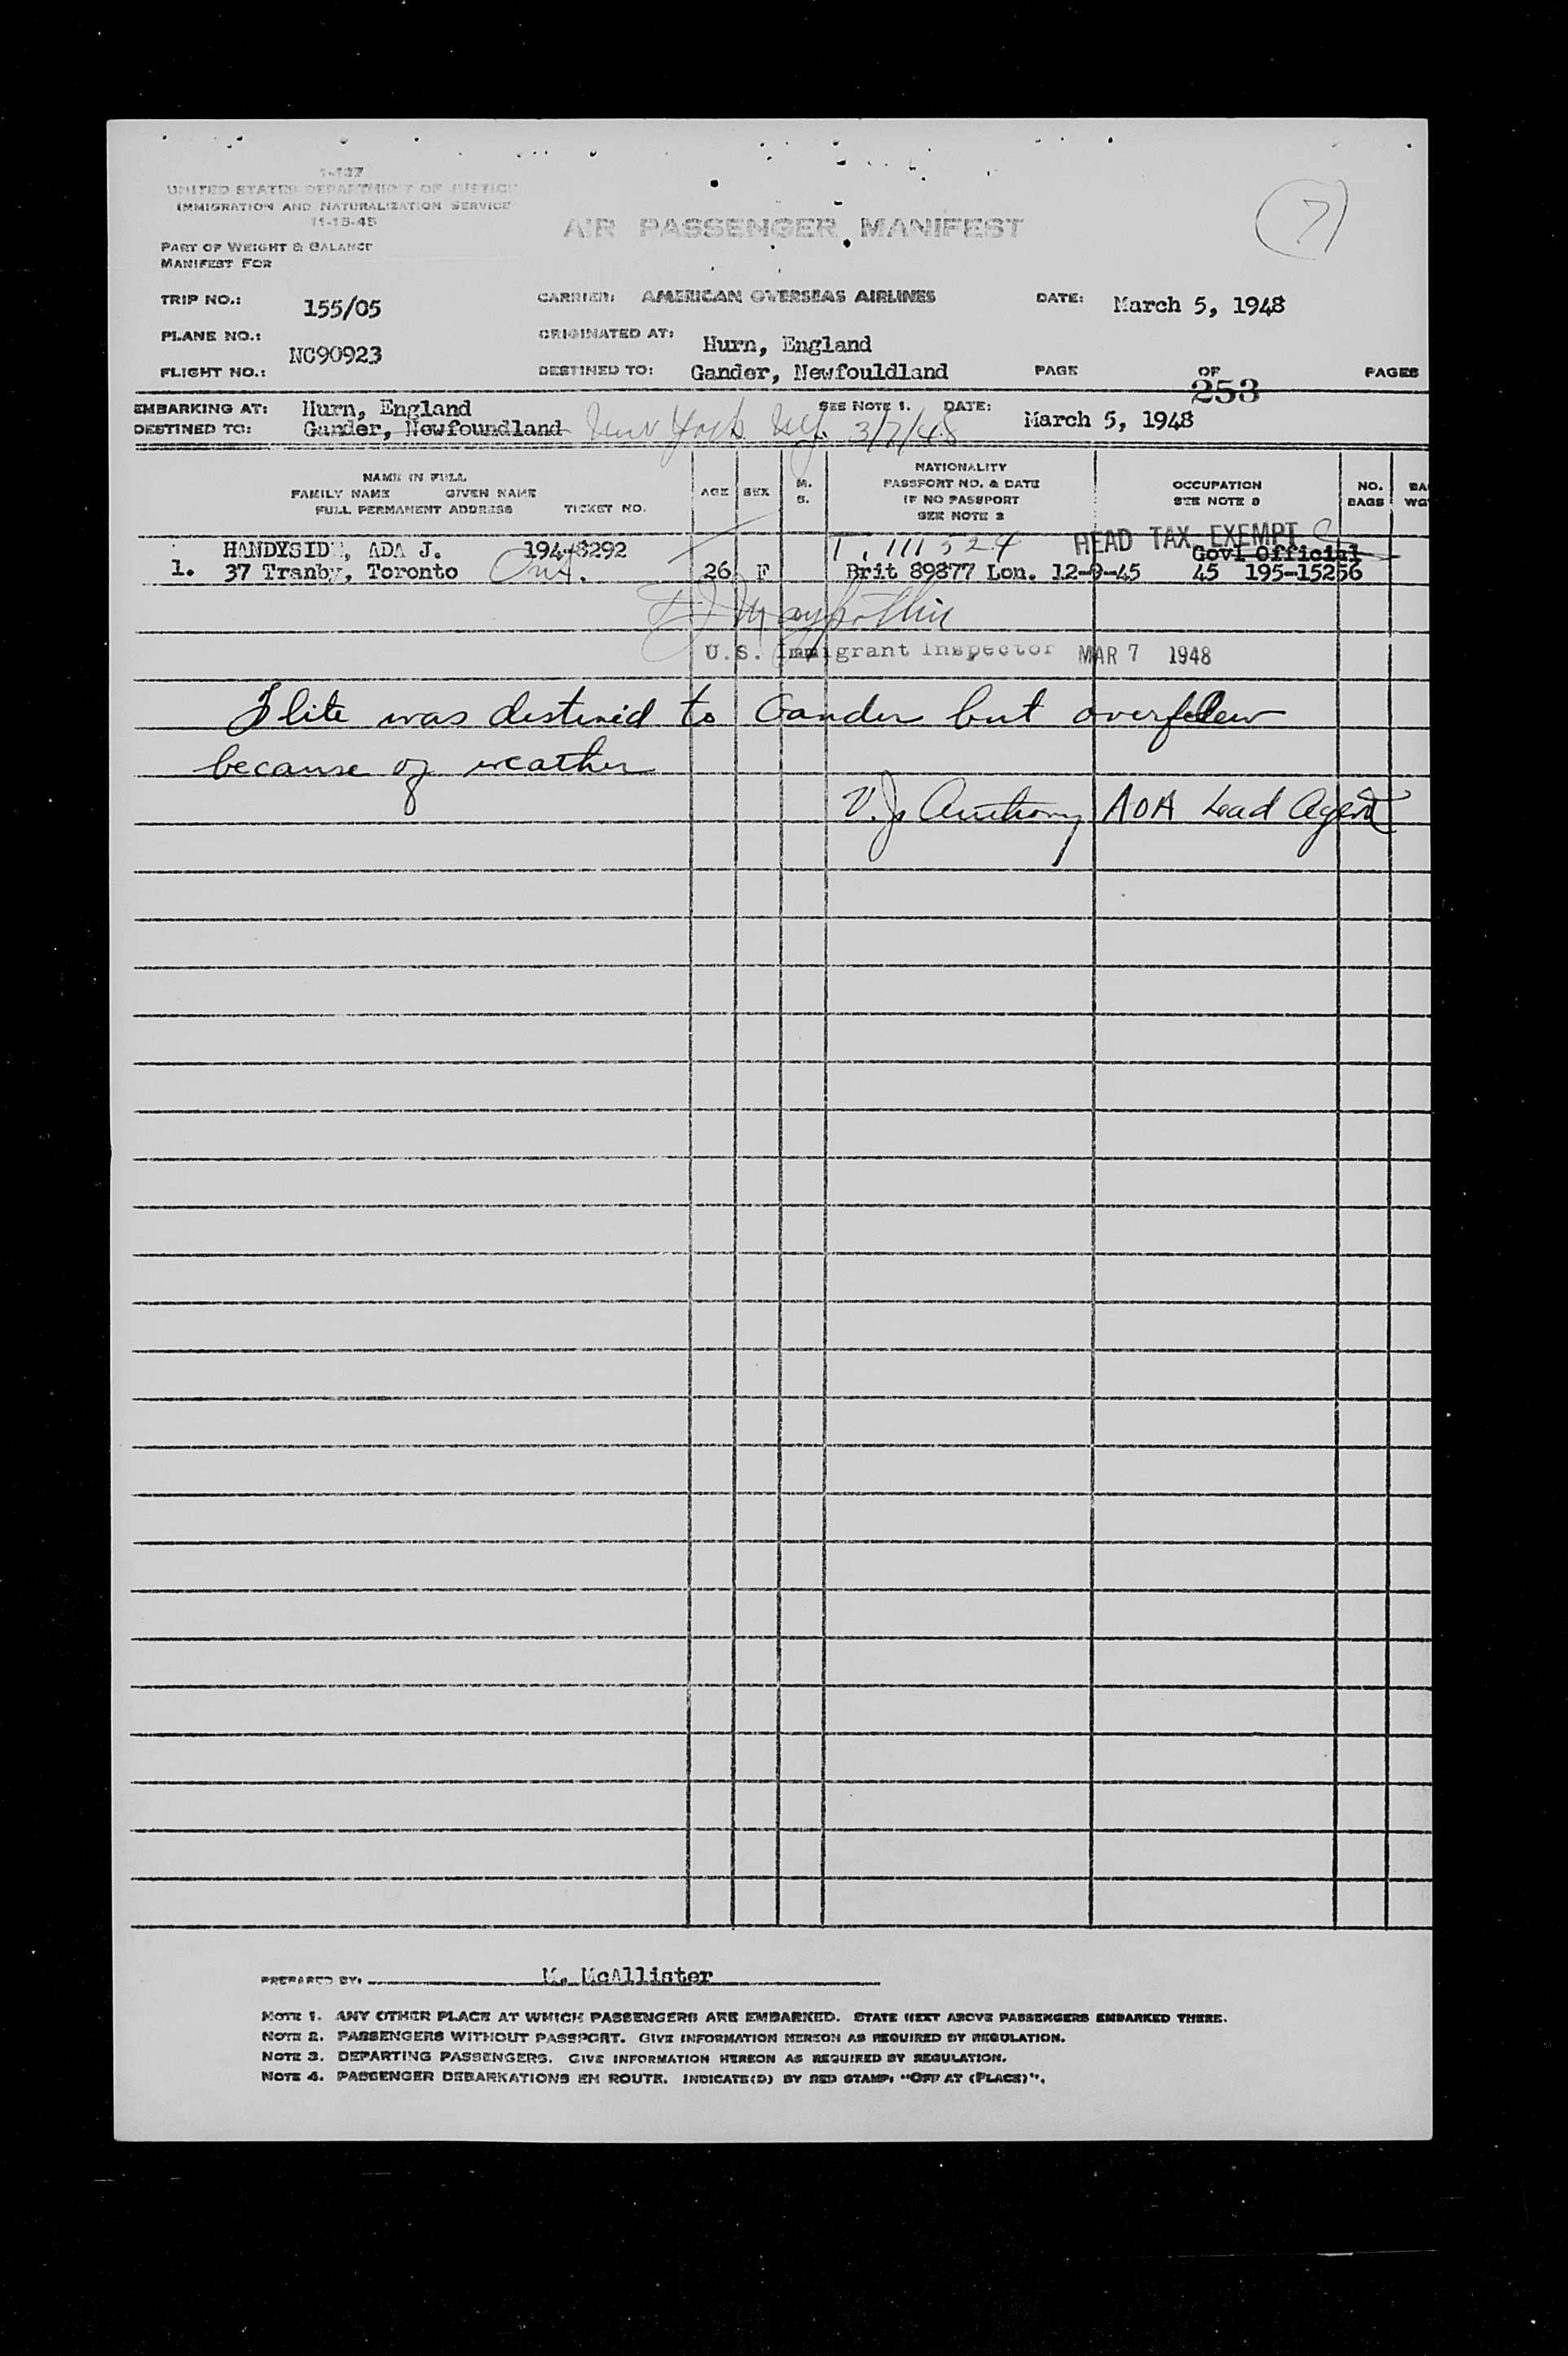 I-137
UNITED STATES DEPARTMENT OF JUSTICE
IMMIGRATION AND NATURALIZATION SERVICE
11-15-45
AIR PASSENGER MANIFEST
7
PART OF WEIGHT & BALANCE
MANIFEST FOR
TRIP NO.: 155/05 CARRIER: AMERICAN OVERSEAS AIRLINES DATE: March 5, 1948
PLANE NO.: NC90923 ORIGINATED AT: Hurn, England
FLIGHT NO.: DESTINED TO: Gander, Newfouldland PAGE OF PAGES
253
EMBARKING AT: Hurn, England SEE NOTE 1. DATE: March 5, 1948
DESTINED TO: Gander, Newfoundland New York NY. 3/7/48
NAME IN FULL
FAMILY NAME GIVEN NAME
FULL PERMANENT ADDRESS TICKET NO.
AGE SEX M. S.
NATIONALITY
PASSPORT NO. & DATE
IF NO PASSPORT
SEE NOTE 2
OCCUPATION
SEE NOTE 3
NO. BAGS
BA WG
HANDYSIDE, ADA J. 194-8292 111524 HEAD TAX EXEMPT
Govt Official
1. 37 Tranby, Toronto Ont. 26 F Brit 89877 Lon. 12-9-45 45 195-15256
U.S. Immigrant Inspector MAR 7 1948
Flite was destined to Gander but overflew
because of weather
V. J. Anthony AOA Lead Agent
PREPARED BY: M. McAllister
NOTE 1. ANY OTHER PLACE AT WHICH PASSENGERS ARE EMBARKED. STATE NEXT ABOVE PASSENGERS EMBARKED THERE.
NOTE 2. PASSENGERS WITHOUT PASSPORT. GIVE INFORMATION HEREON AS REQUIRED BY REGULATION.
NOTE 3. DEPARTING PASSENGERS. GIVE INFORMATION HEREON AS REQUIRED BY REGULATION.
NOTE 4. PASSENGER DEBARKATIONS EN ROUTE. INDICATE(D) BY RED STAMP: "OFF AT (PLACE)".